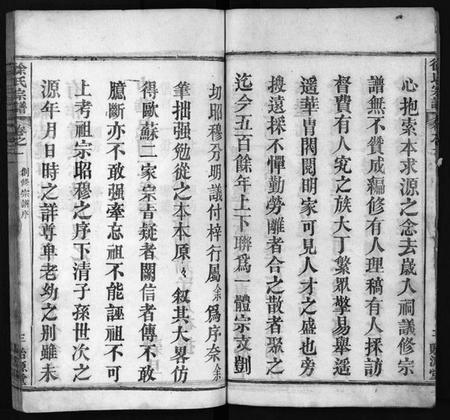 心抱索本求源之念去歲人祠議修宗
譜無不贊成編修有人理稿有人採訪
督費有人究之族大丁繁眾擎易舉遥
遥華胄閥閱明家可見人才之盛也旁
搜遠採不憚勤勞離者合之散者聚之
迄今五百餘年上下聯為一體宗支劃
徐氏宗譜 卷之一 創修宗譜序 三
切昭穆分明議付梓行屬余為序奈余
筆拙强勉從之本本原々叙其大畧仿
得歐蘇二家宗旨疑者闕信者傳不敢
臆斷亦不敢强牽忘祖不能誣祖不可
上考祖宗昭穆之序下清子孫世次之
源年月日時之詳尊卑老幼之別雖未